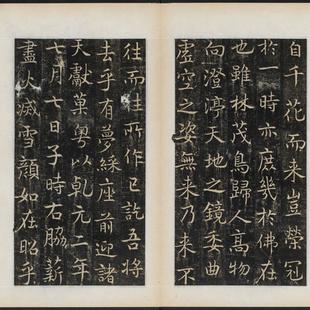 自千花而来豈榮冠
於一時亦庶幾於佛在
也雖林茂鳥歸人高物
向澄渟天地之鏡委曲
虛空之姿無来乃来不
往而往所作已訖吾將
去乎有夢綵座前迎諸
天獻菓粤以乾元二年
七月七日子時右脇薪
盡火滅雪顏如在昭乎